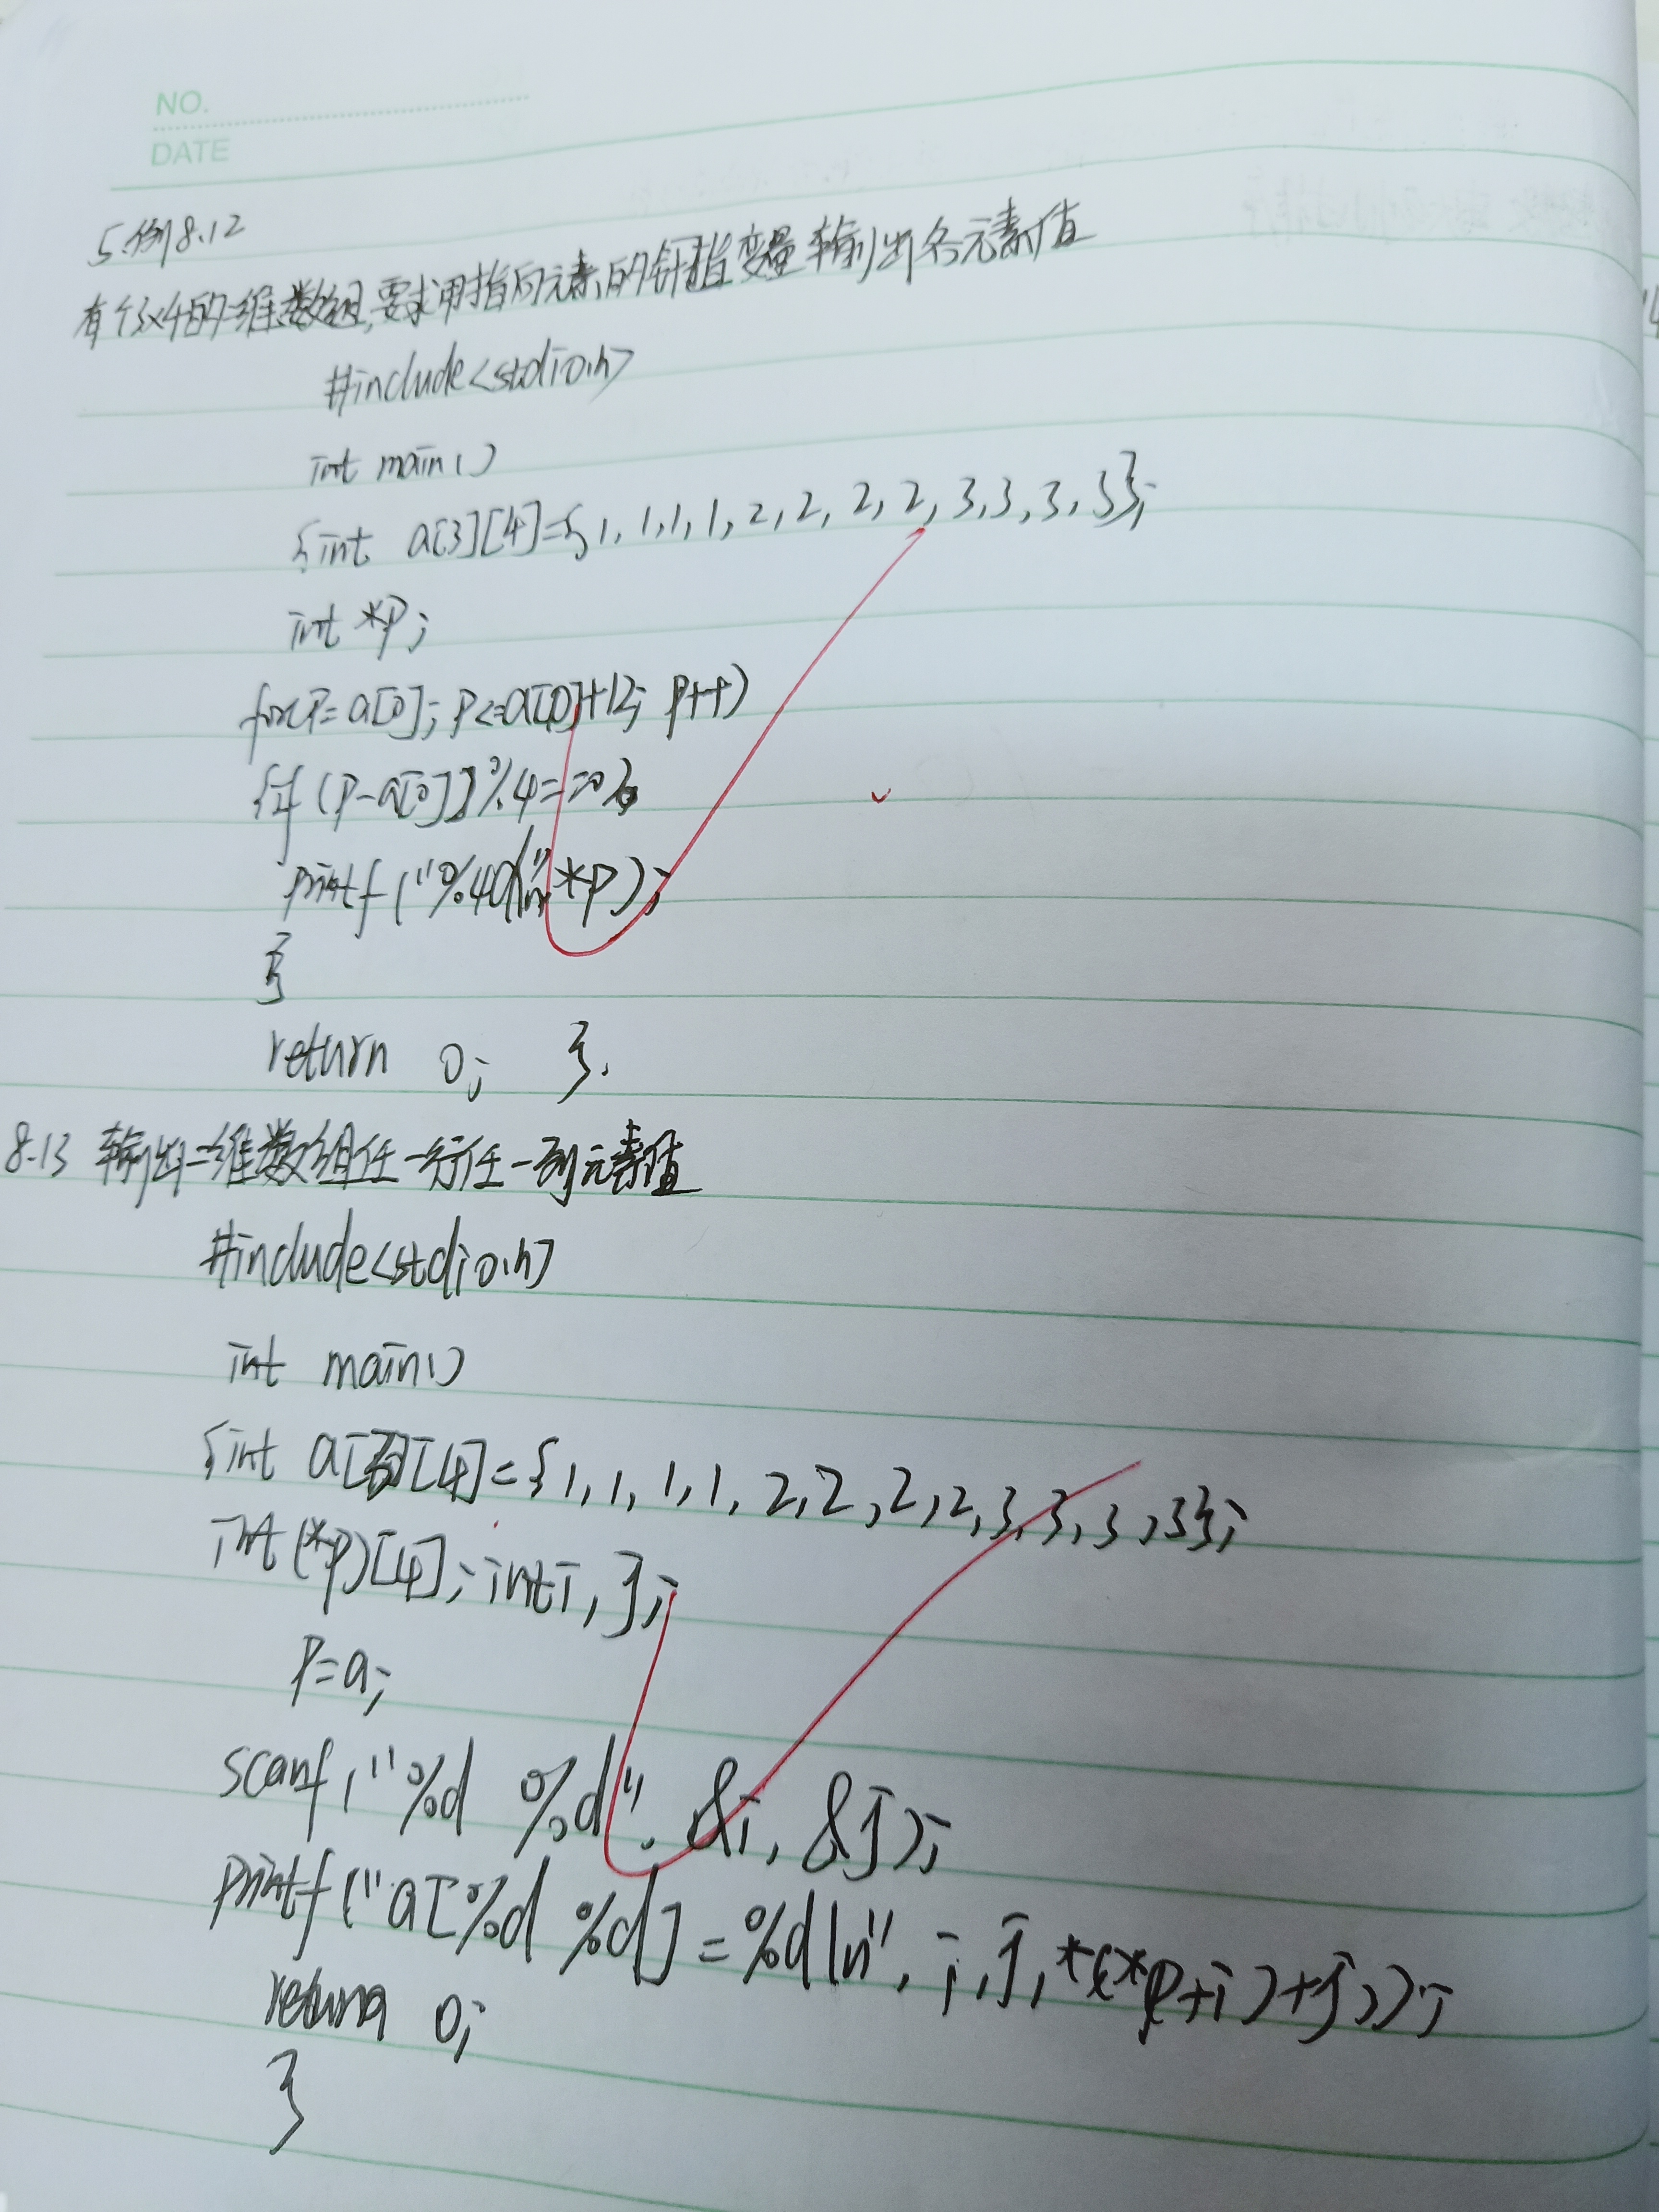 NO.
DATE
5.例8.12
有个3×4的二维数组,要求用指向元素的针指变量输出各元素值
#include<stdio.h>
int main()
{int a[3][4]={1,1,1,1,2,2,2,2,3,3,3,3};
int *p;
for(p=a[0];p<=a[0]+12;p++)
{if (p-a[0])%4==0
printf("%4d\n"*p);
}
return 0; }.
8.13 输出二维数组任一行任一列元素值
#include<stdio.h>
int main()
{int a[3][4]={1,1,1,1,2,2,2,2,3,3,3,3};
int(*p)[4];int i,j;
p=a;
scanf("%d %d",&i,&j);
printf("a[%d %d]=%d\n",i,j,*(*p+i)+j));
return 0;
}